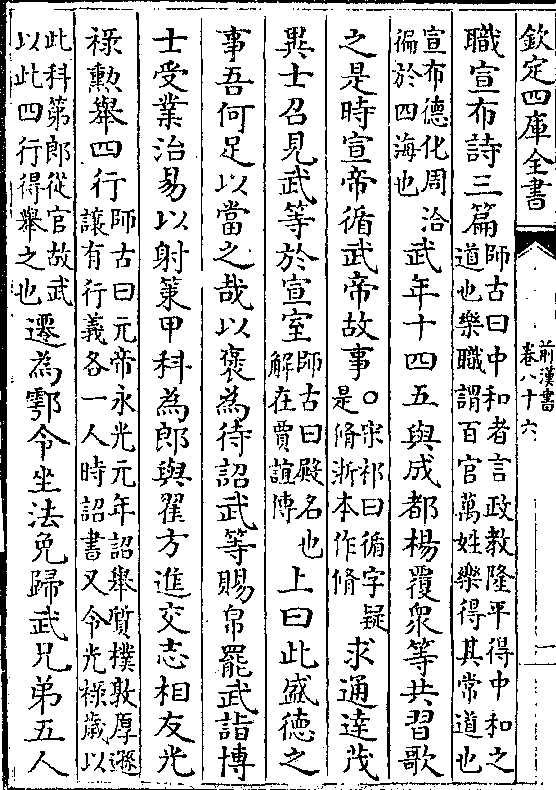 欽定四庫全書
前漢書
卷八十六
一
職宣布詩三篇師古曰中和者言政教隆平得中和之
道也樂職謂百官萬姓樂得其常道也
宣布德化周洽
徧於四海也武年十四五與成都楊覆衆等共習歌
之是時宣帝循武帝故事○宋祁曰循字疑
是脩浙本作脩求通達茂
異士召見武等於宣室師古曰殿名也
解在賈誼傳上曰此盛德之
事吾何足以當之哉以褒為待詔武等賜帛罷武詣博
士受業治易以射策甲科為郎與翟方進交志相友光
祿勲舉四行師古曰元帝永光元年詔舉質樸敦厚遜
讓有行義各一人時詔書又令光祿歲以
此科第郎從官故武
以此四行得舉之也遷為鄠令坐法免歸武兄弟五人